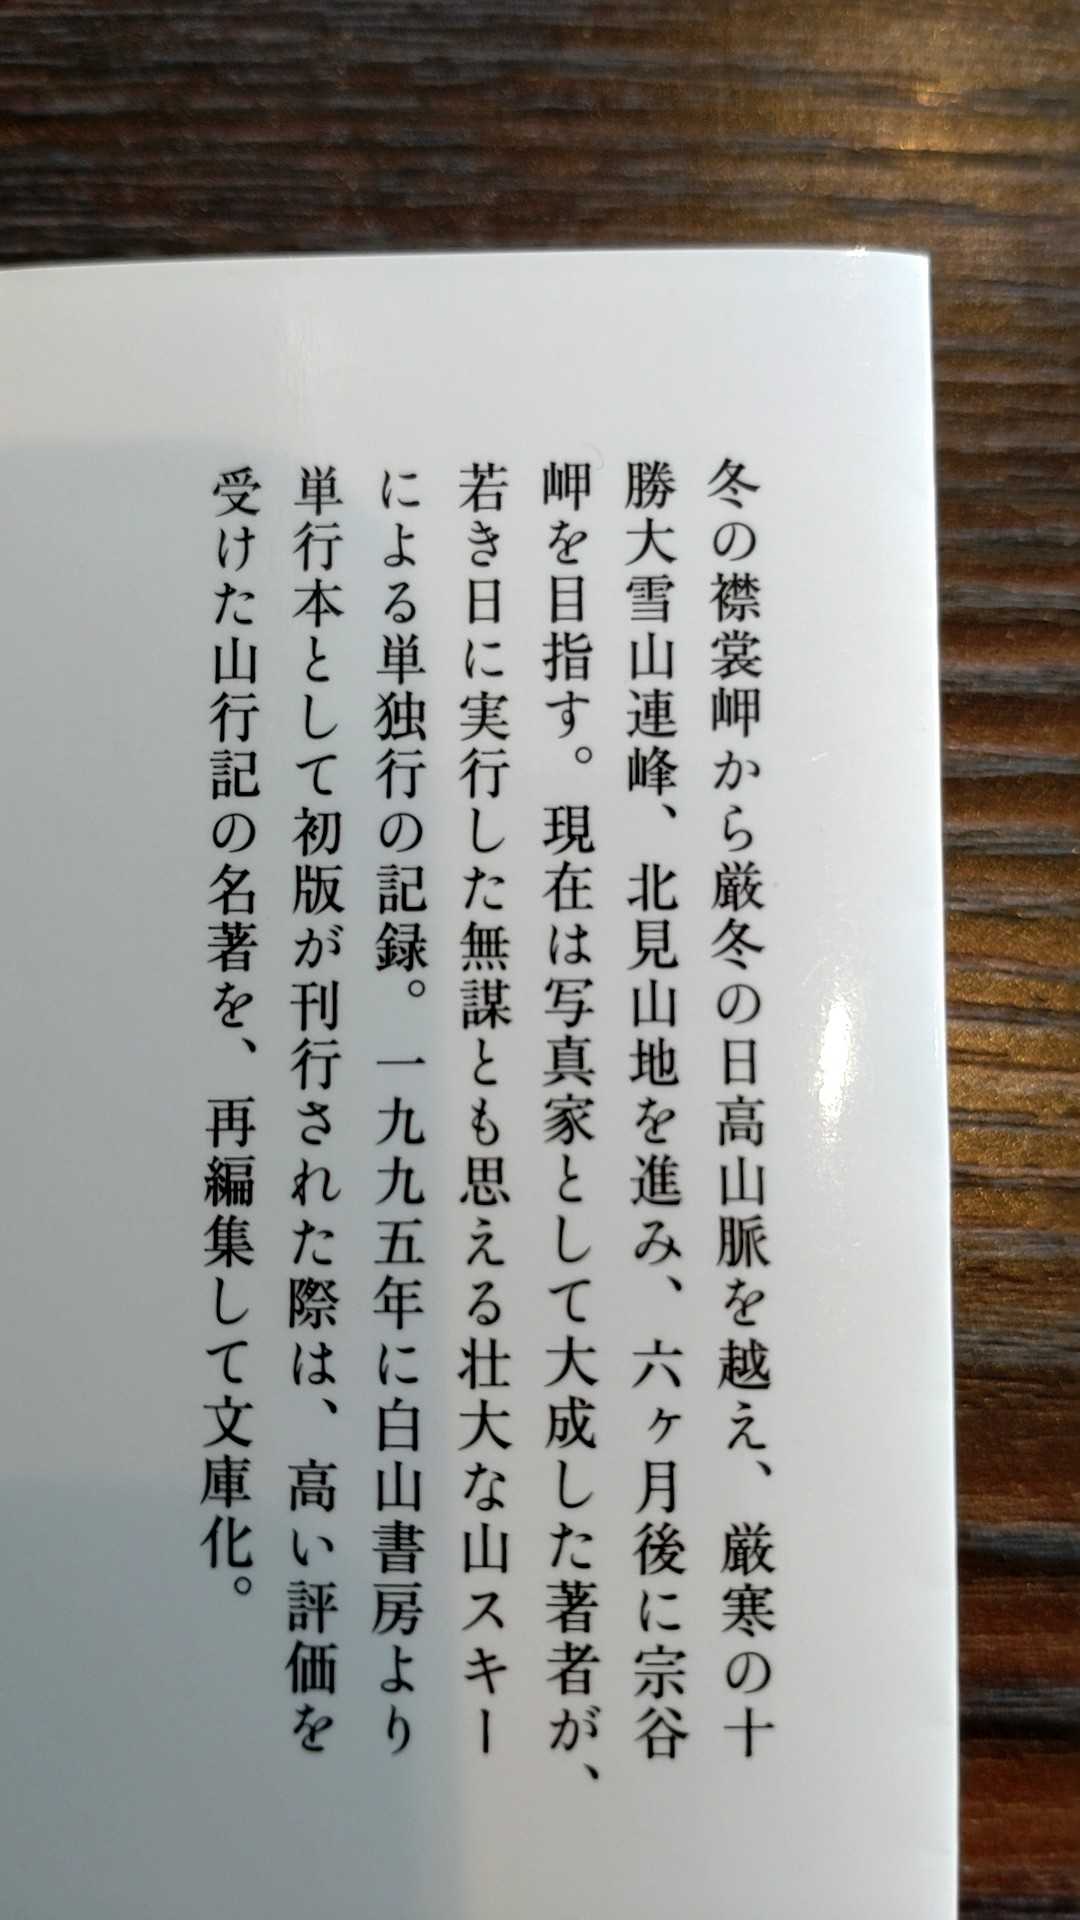 冬の襟裳岬から厳冬の日高山脈を越え、厳寒の十
勝大雪山連峰、北見山地を進み、六ヶ月後に宗谷
岬を目指す。現在は写真家として大成した著者が、
若き日に実行した無謀とも思える壮大な山スキー
による単独行の記録。一九九五年に白山書房より
単行本として初版が刊行された際は、高い評価を
受けた山行記の名著を、再編集して文庫化。